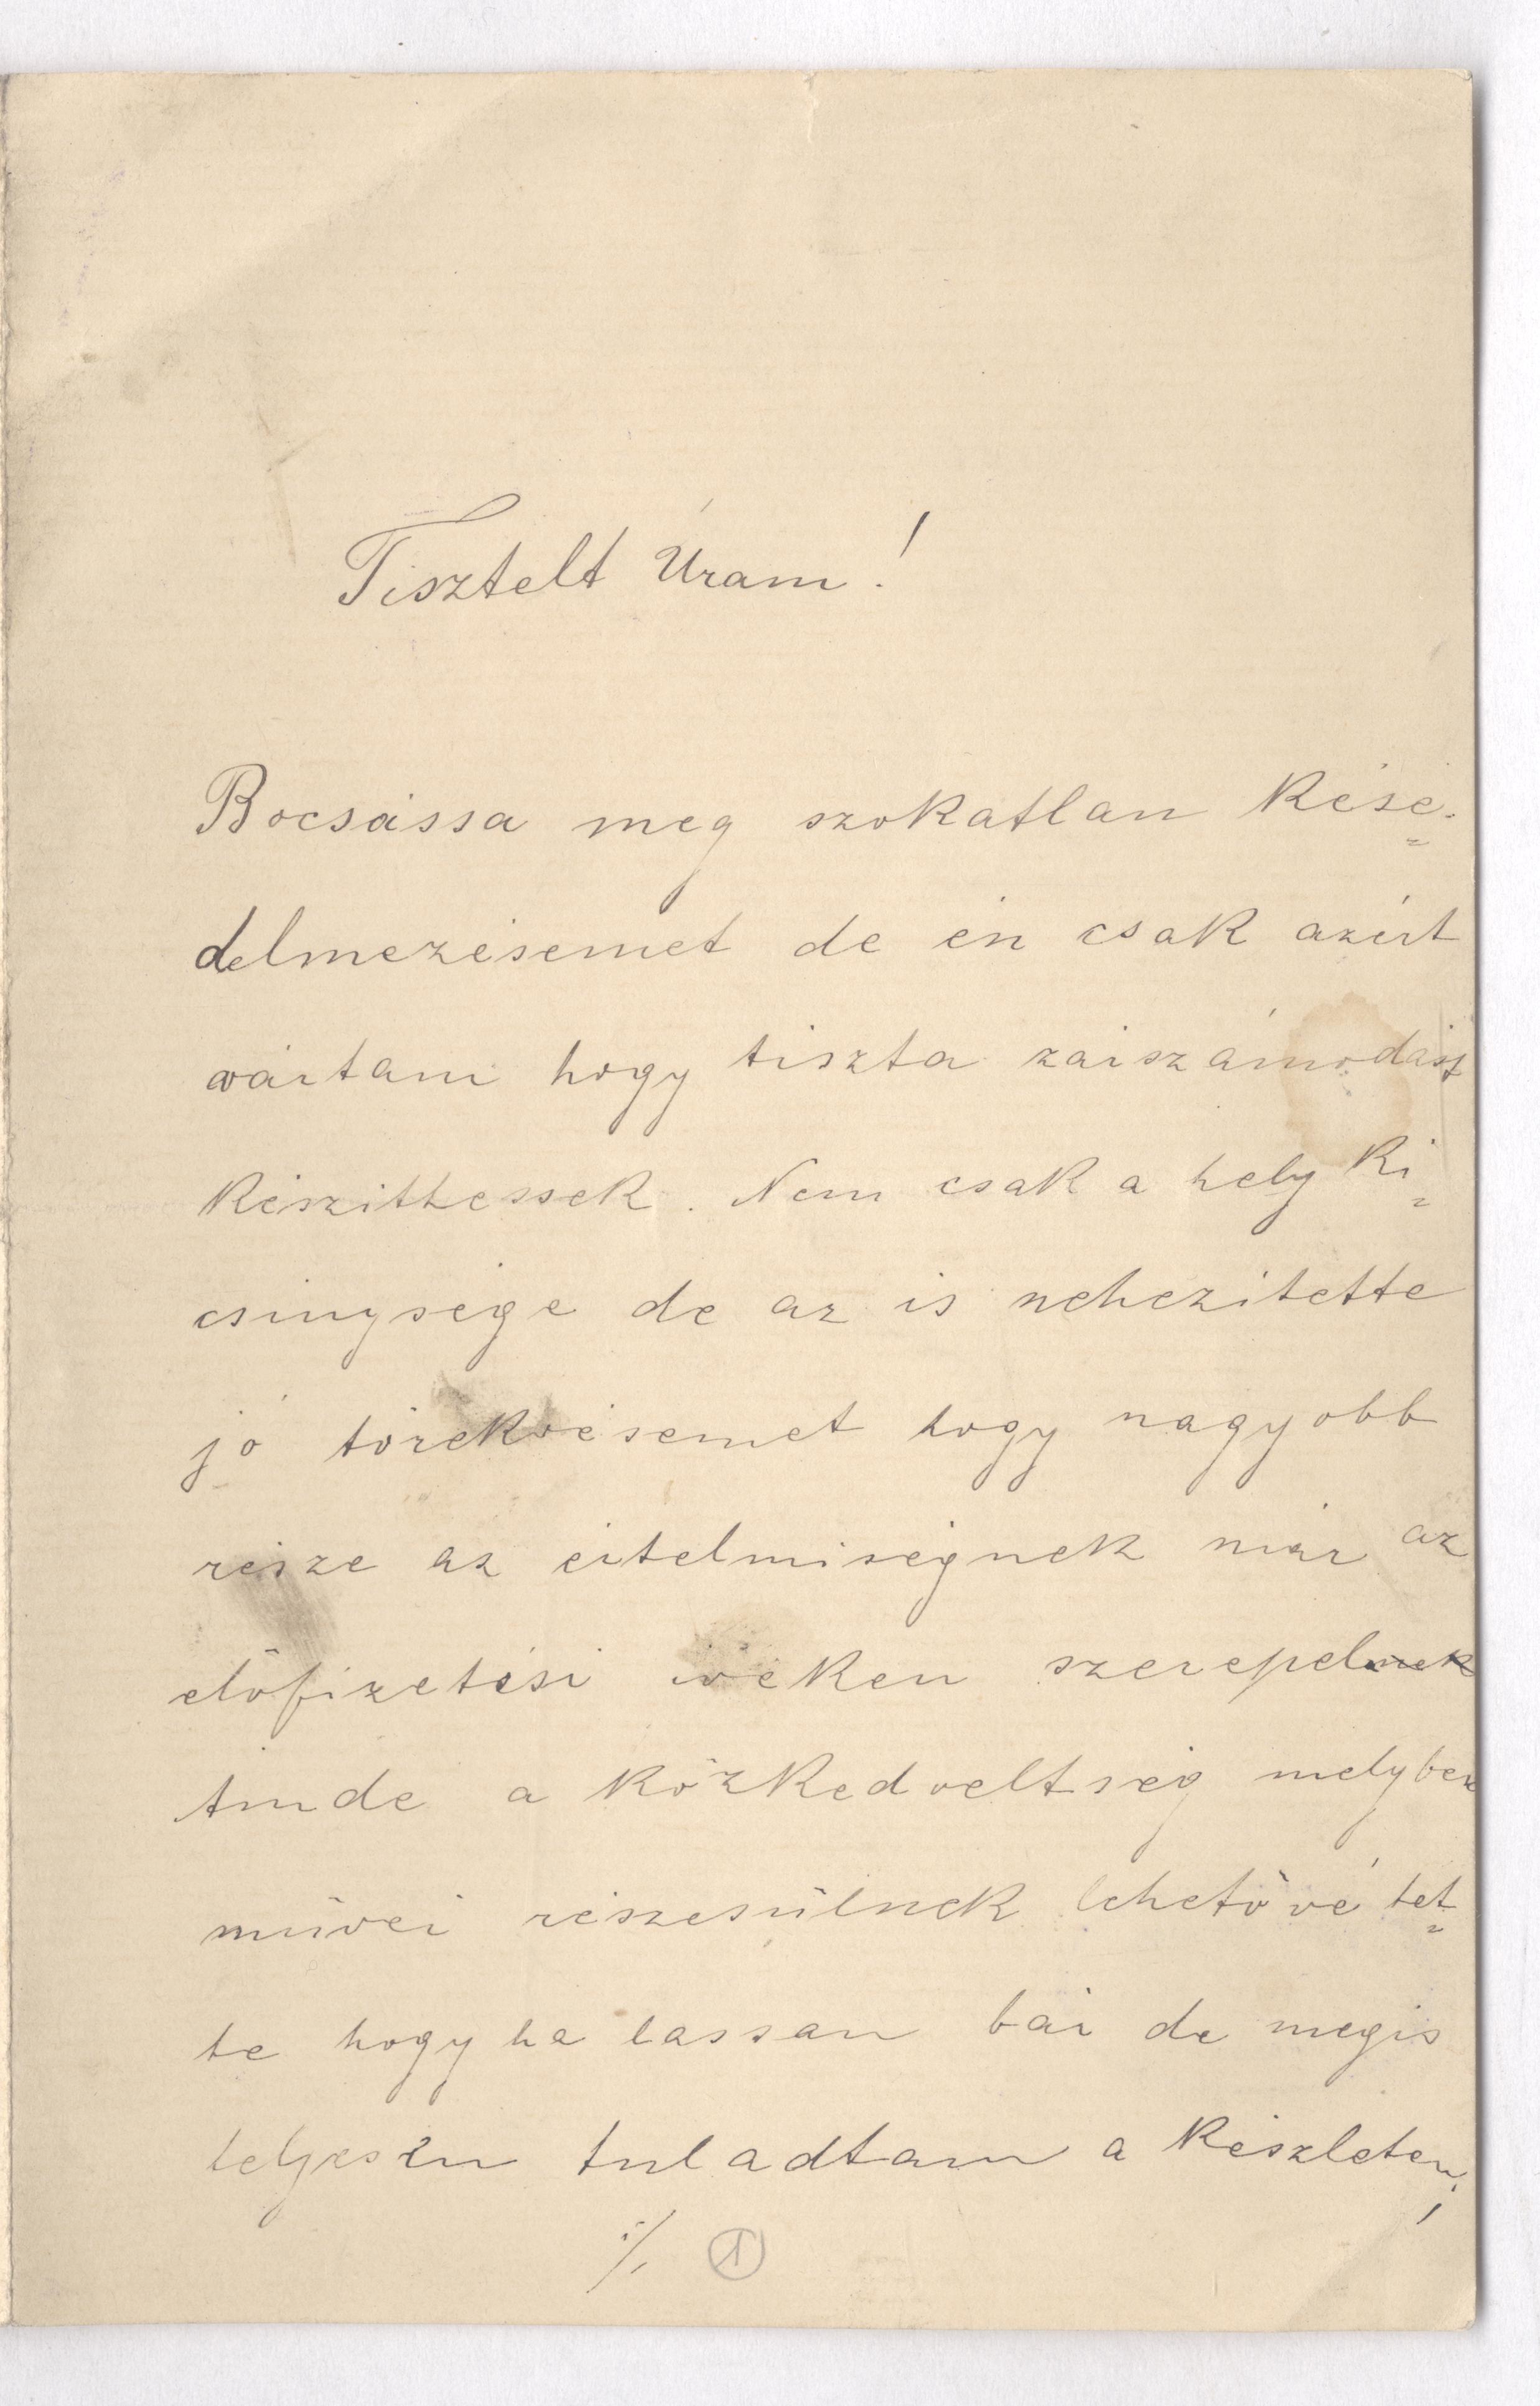 Tisztelt Uram!
Bocsássa meg szokatlan kése=
delmezésemet de én csak azért
vártam hogy tiszta zárszámodást
készithessek. Nem csak a hely ki=
csinysége de az is nehezitette
jó törekvésemet hogy nagyobb
része az értelmiségnek már az
előfizetési iveken szerepelnek
ámde a közkedveltség melyben
müvei részesülnek lehetővé tet=
te hogy ha lassan bár de mégis
teljesen tul adtam a készleten;
./. 1